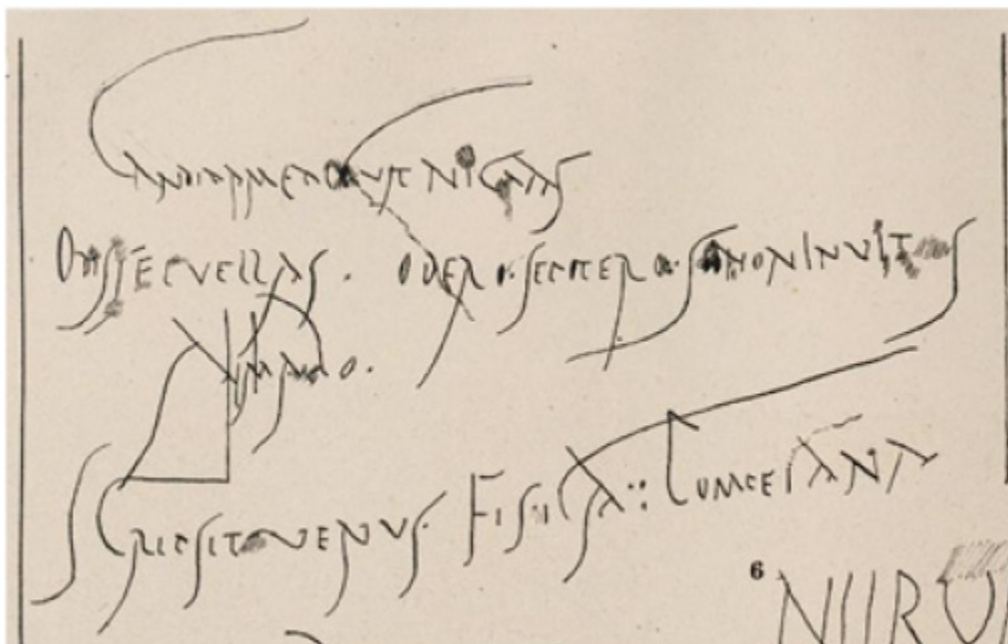 CANDIDA ME DOCUIT NIGRAS
ODISSE PUELLAS. ODERO SE POTERO SE NON INVITUS
AMABO.
SCRIPSIT VENUS FISICA : POMPEIANA
6